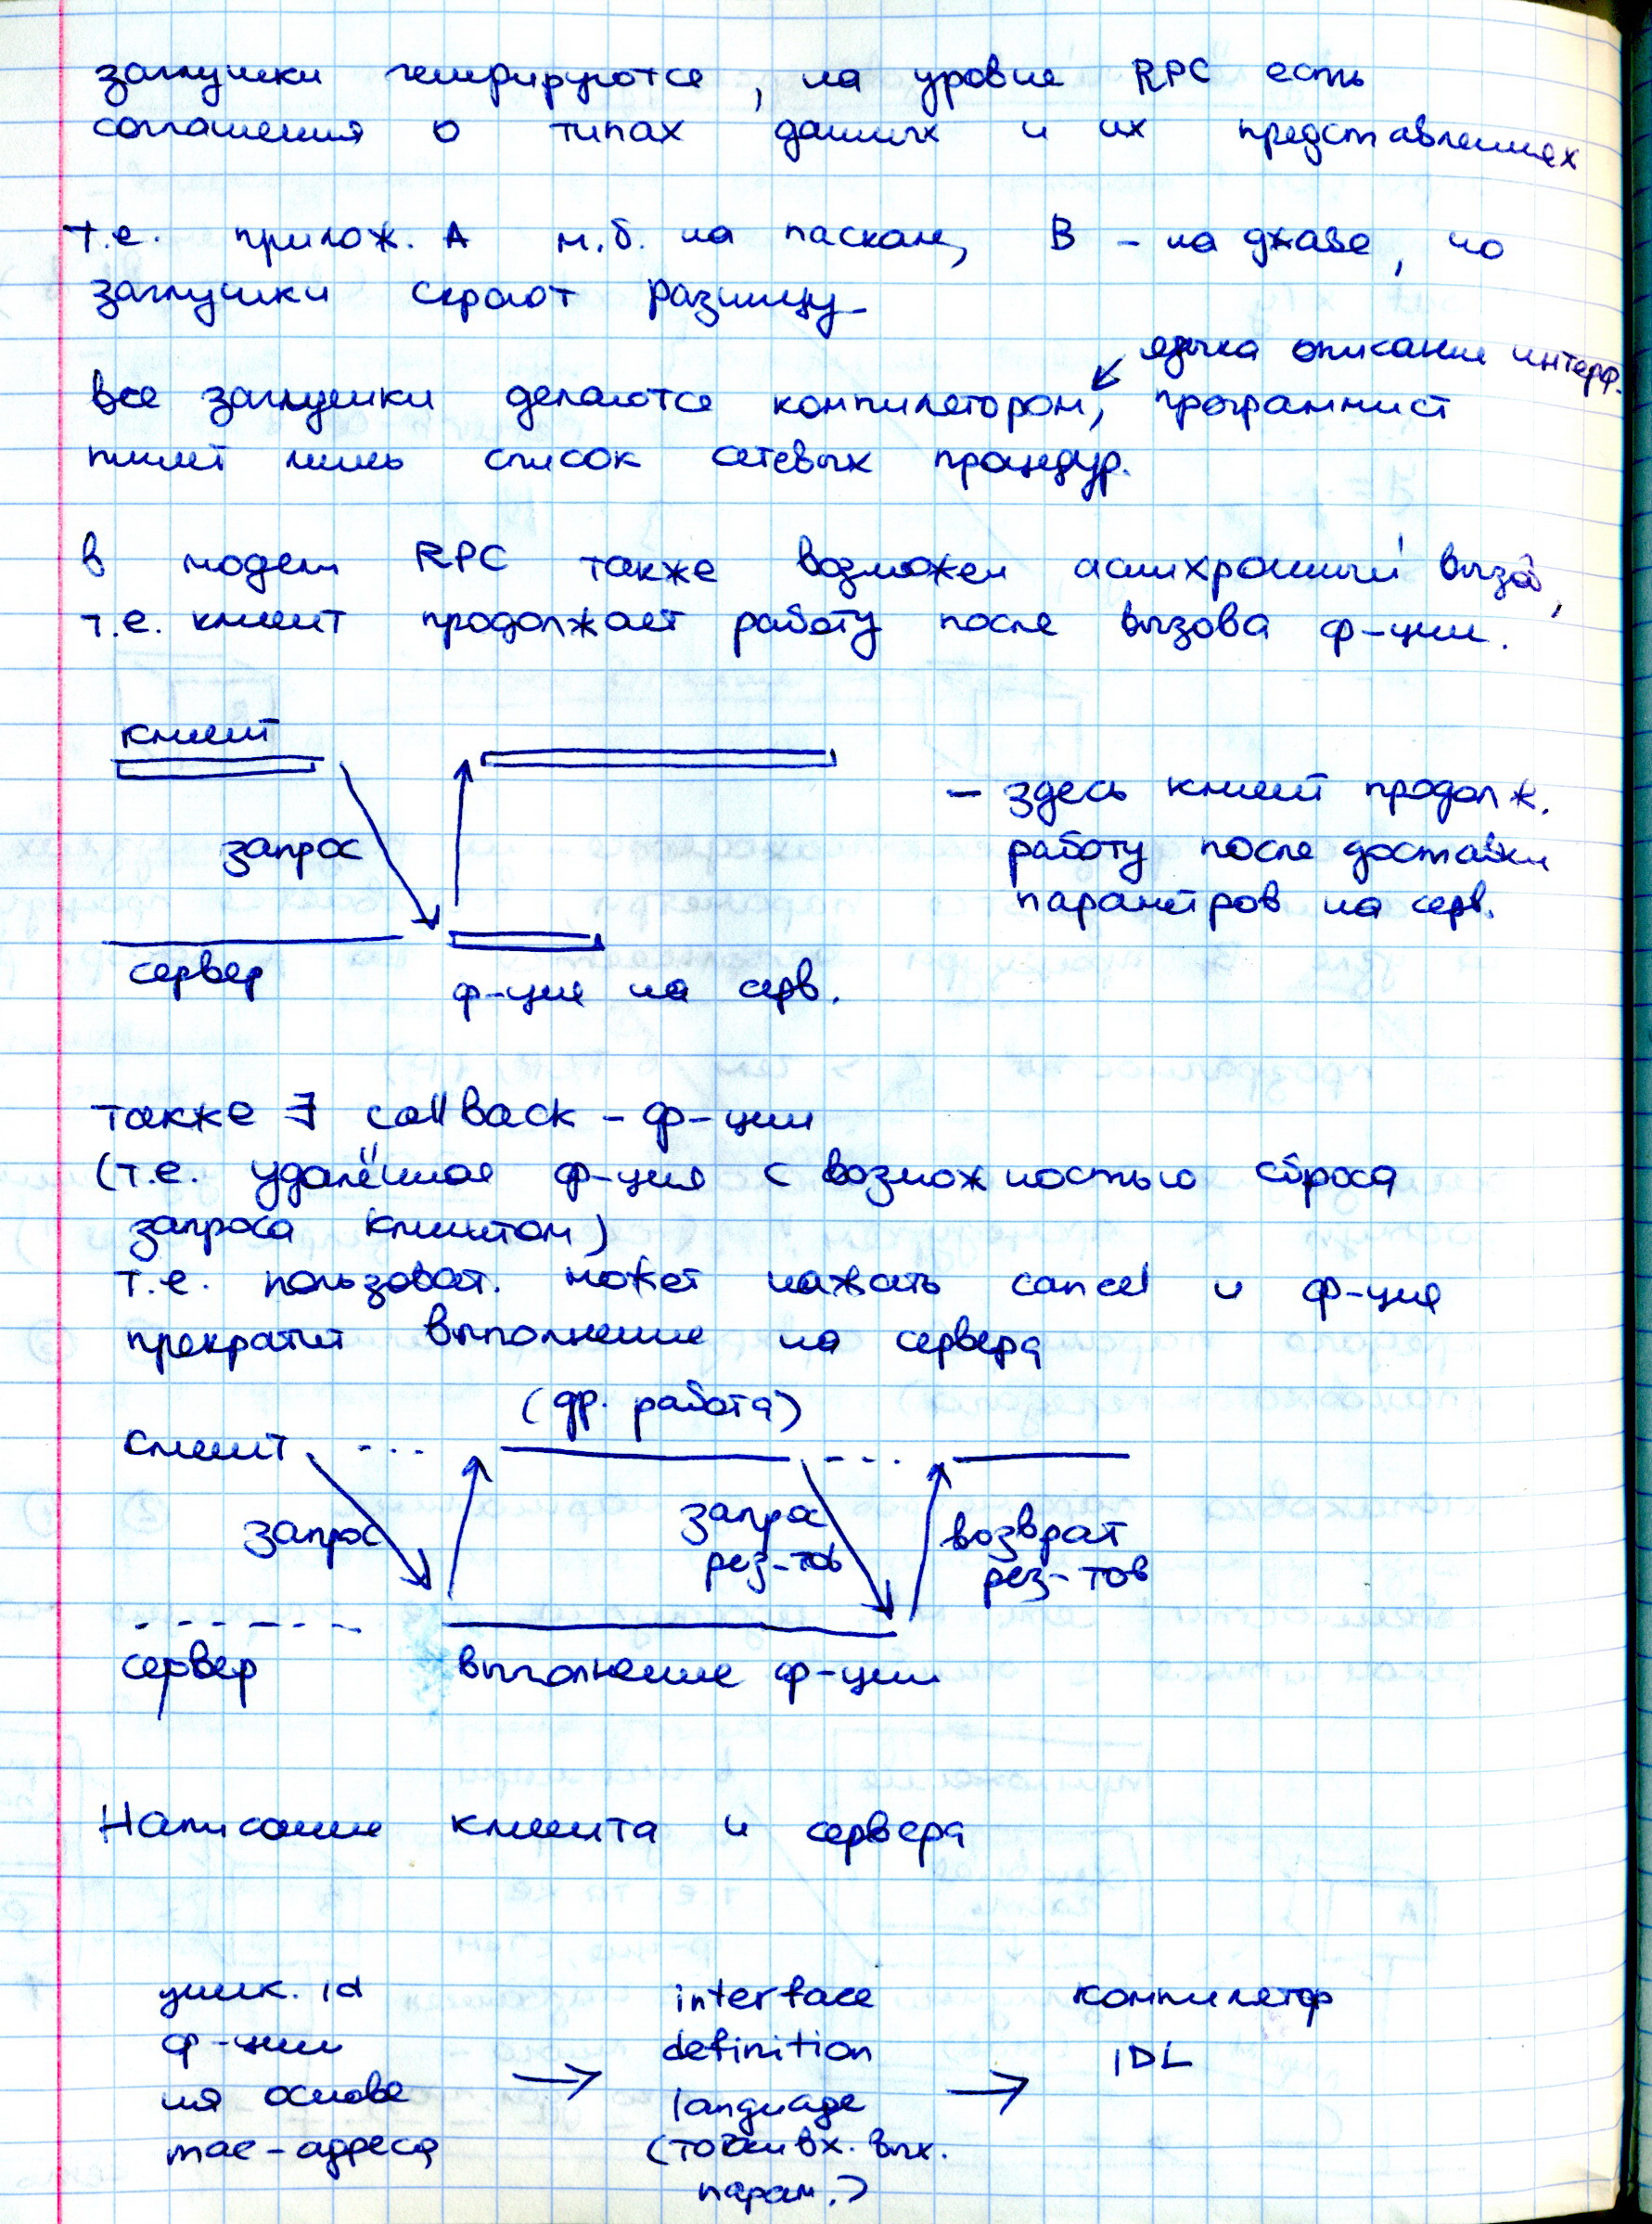 заглушки генерируются, на уровне RPC есть
соглашения о типах данных и их представлениях
т.е. прилож. А м.б. на паскале, В - на джаве, но
заглушки скроют разницу
языка описания интерф.
все заглушки делаются компилятором, программист
пишет лишь список сетевых процедур.
в модели RPC также возможен асинхронный вызов,
т.е. клиент продолжает работу после вызова ф-ции.
клиент
запрос
сервер
ф-ция на серв.
- здесь клиент продолж.
работу после доставки
параметров на серв.
также ∃ callback - ф-ции
(т.е. удалённая ф-ция с возможностью сброса
запроса клиентом)
т.е. пользоват. может нажать cancel и ф-ция
прекратит выполнение на сервере
(др. работа)
клиент
запрос
запрос
рез-тов
возврат
рез-тов
сервер
выполнение ф-ции
Написание клиента и сервера
уник. id
ф-ции
на основе
mac-адреса
→
interface
definition
language
(точки вх. вых.
парам.)
→
компилятор
IDL